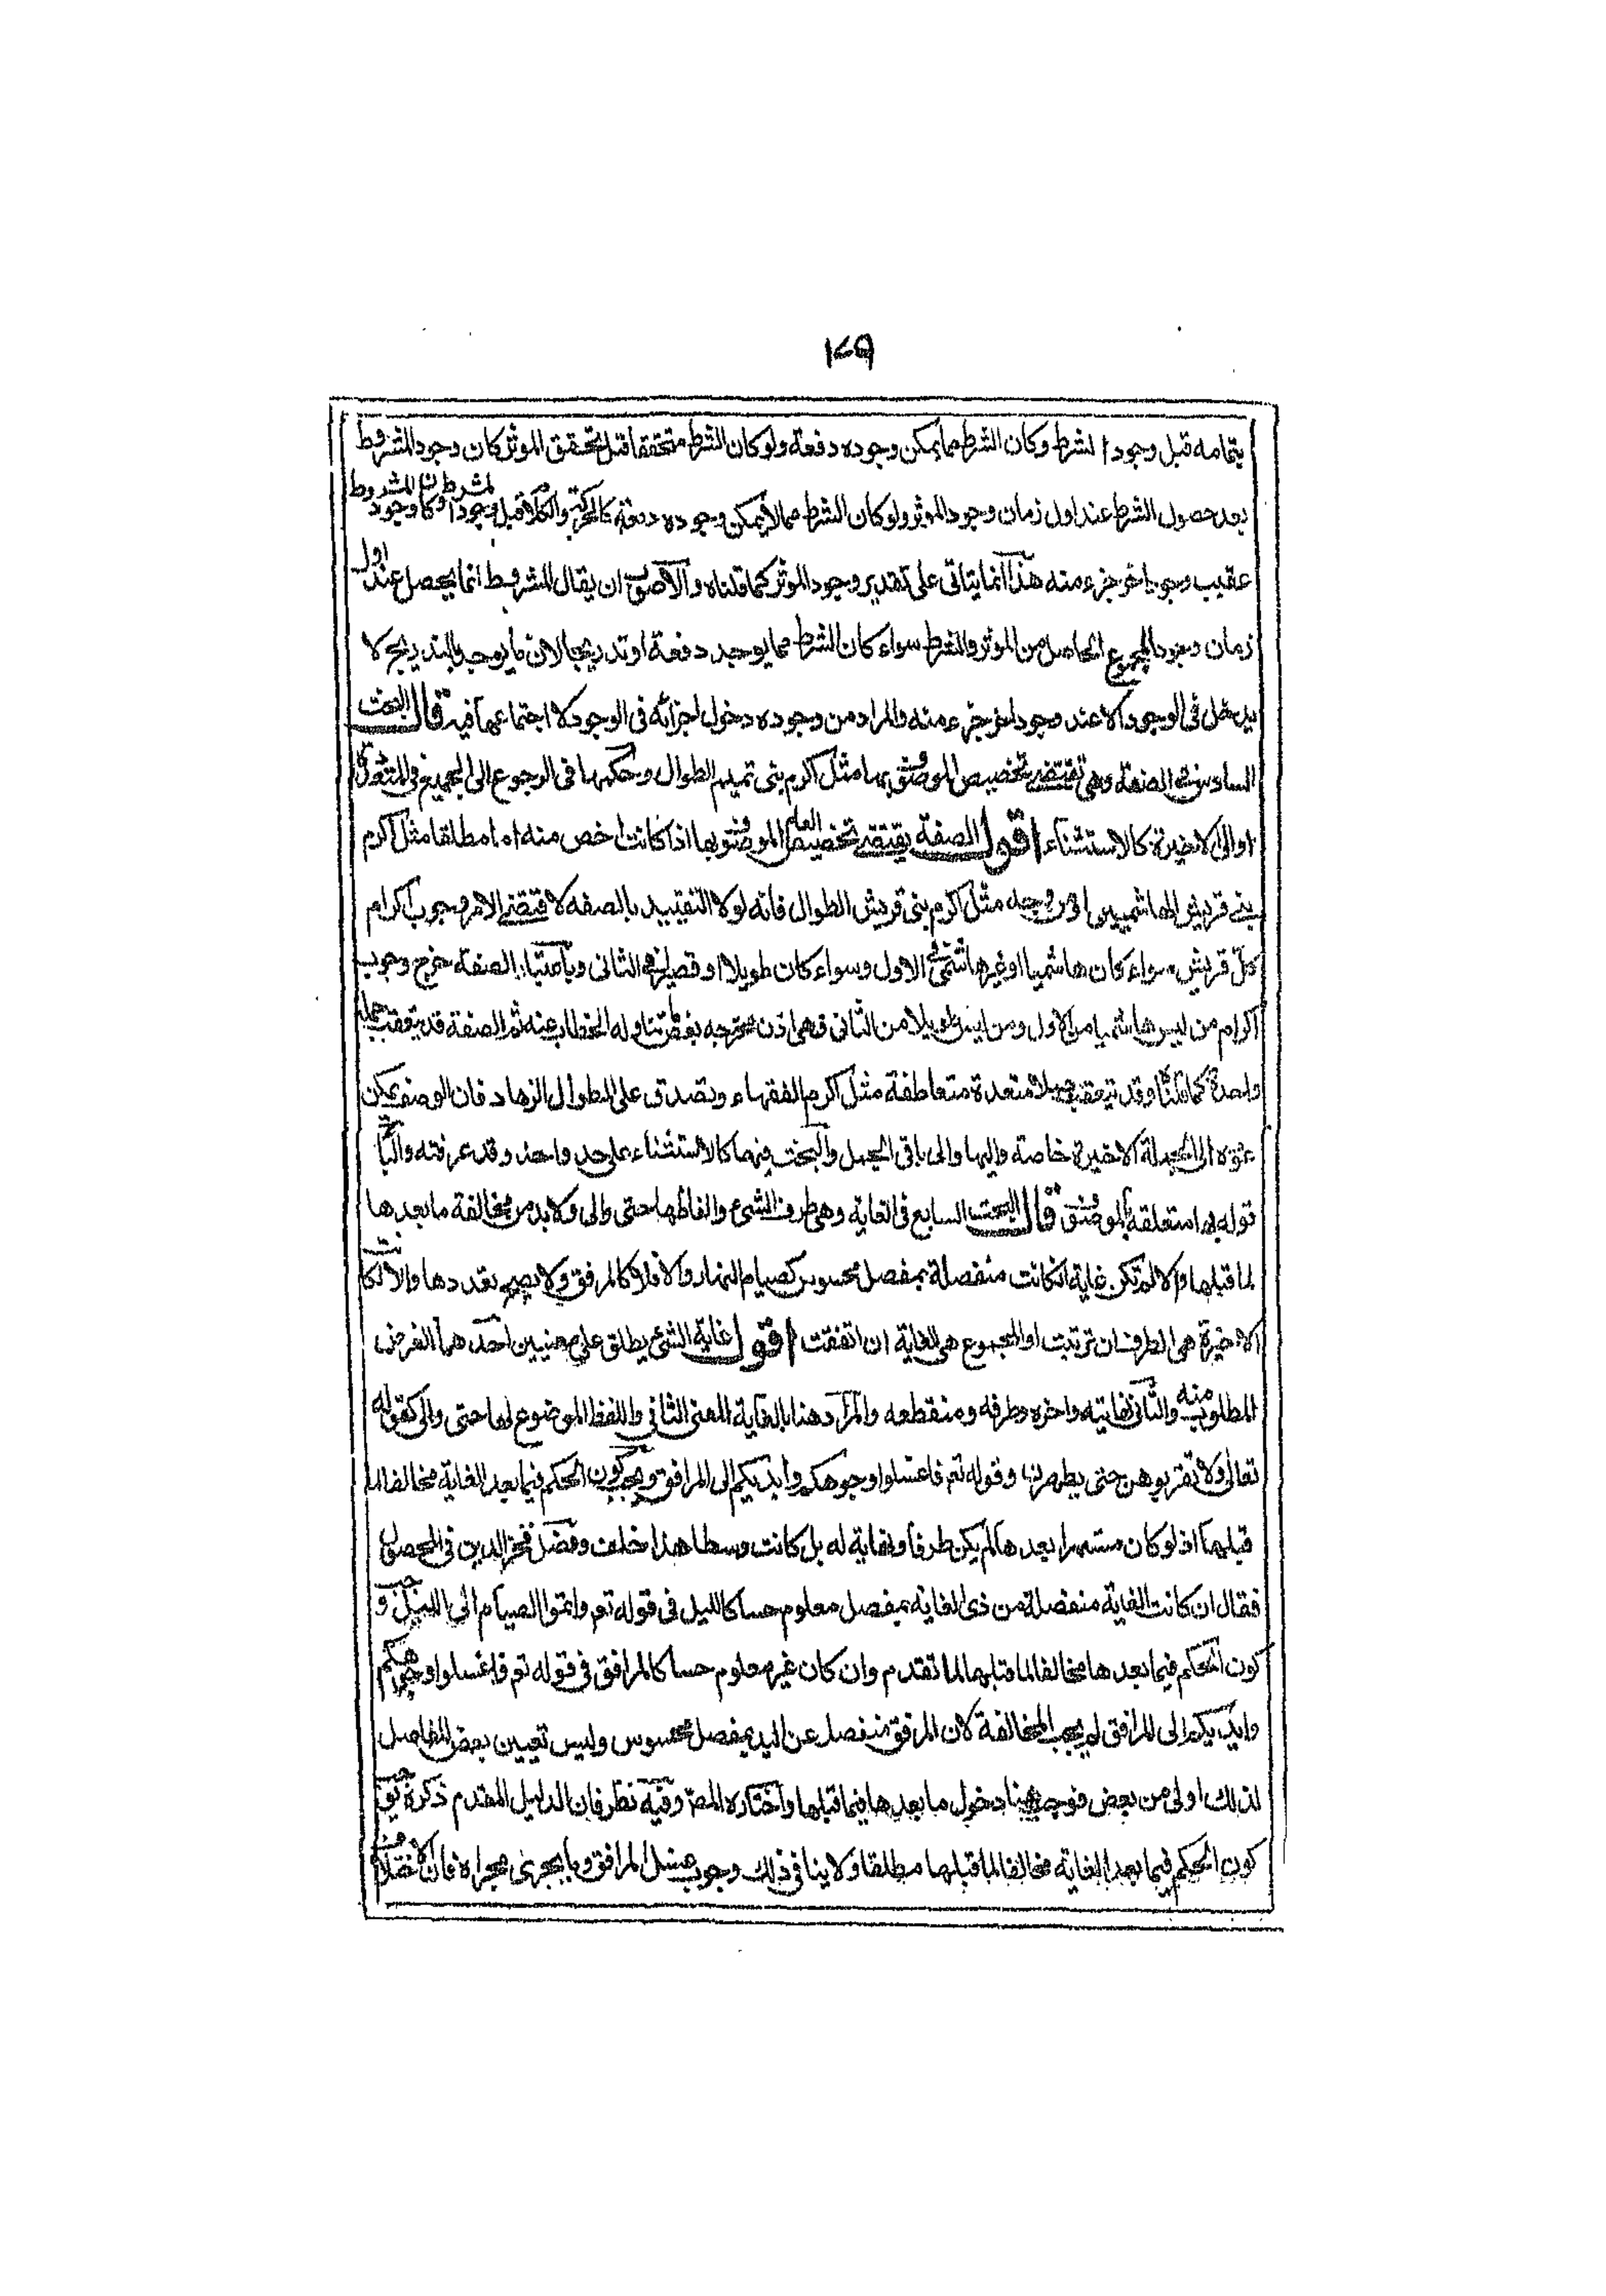 ١٤٩
بتمامه قبل وجود الشرط وكان الشرط مما يمكن وجوده دفعة ولو كان الشرط متحققا قبل تحقق الموثر كان وجود المشروط
بعد حصول الشرط عند اول زمان وجود الموثر ولو كان الشرط مما لا يمكن وجوده دفعة كالحركة والكلام قبل وجود
عقيب وجود اخر جزء منه هذا انما يتاتى على تقدير وجود الموثر كما قلناه والاصوب ان يقال المشروط انما يحصل عند اول
زمان وجود المجموع الحاصل من الموثر والشرط سواء كان الشرط مما يوجد دفعة او تدريجا لان ما يوجد بالتدريج لا
يدخل في الوجود الا عند وجود اخر جزء منه والمراد من وجوده دخول اجزائه في الوجود لا اجتماعها فيه قال البحث
السادس في الصفة وهي تقتضي تخصيص الموصوف بها مثل اكرم بني تميم الطوال وحكمها في الرجوع الى الجميع في المتعدد
او الى الاخيرة كالاستثناء اقول الصفة يقتضي تخصيص العام الموصوف بها اذا كانت اخص منه اما مطلقا مثل اكرم
بني قريش الهاشميين او من وجه مثل اكرم بني قريش الطوال فانه لولا التقييد بالصفه لاقتضى الامر وجوب اكرام
كل قريش سواء كان هاشميا او غير هاشمي في الاول وسواء كان طويلا او قصيرا في الثاني وباعتبار الصفة خرج وجوب
اكرام من ليس هاشميا من الاول ومن ليس طويلا من الثاني فهي اذن مخرجه بعض ما تناوله الخطاب عنه ثم الصفة قد يتعقب جملة
واحدة كما قلنا وقد يتعقب جملا متعددة متعاطفة مثل اكرم الفقهاء وتصدق على الطوال الزهاد فان الوصف يمكن
عوده الى الجملة الاخيرة خاصة واليها والى باقي الجمل والبحث فيها كالاستثناء على حد واحد وقد عرفته والباء
قوله بها متعلقة بالموصوف قال البحث السابع في الغاية وهي طرف الشيء والفاظها حتى والى ولابد من مخالفة ما بعدها
لما قبلها والا لم تكن غاية ان كانت منفصلة بمفصل محسوس كصيام النهار والا فلا كالمرفق ولا يصير تعددها والا لكانت
الاخيرة هي الطرف ان ترتبت او المجموع هي الغاية ان اتفقت اقول غاية الشيء يطلق على معنيين احدهما الغرض
المطلوب منه والثاني نهايته واخره وطرفه ومنقطعه والمراد هنا بالغاية المعنى الثاني واللفظ الموضوع لها حتى والى كقوله
تعالى ولا تقربوهن حتى يطهرن وقوله تع فاغسلوا وجوهكم وايديكم الى المرافق ويجب كون الحكم فيما بعد الغاية مخالفا لما
قبلها اذ لو كان مستمرا بعدها لم يكن طرفا ونهاية له بل كانت وسطا هذا خلف وفصل فخر الدين في المحصول
فقال ان كانت الغاية منفصلة من ذي الغاية بمفصل معلوم حسا كالليل في قوله تع واتموا الصيام الى الليل وجب
كون الحكم فيما بعدها مخالفا لما قبلها لما تقدم وان كان غير معلوم حسا كالمرافق في قوله تع فاغسلوا وجوهكم
وايديكم الى المرافق لم يجب المخالفة لان المرفق منفصل عن اليد بمفصل محسوس وليس تعيين بعض المفاصل
لذلك اولى من بعض فوجب هنا دخول ما بعدها فيما قبلها واختاره المص وفيه نظر فان الدليل المقدم ذكره يوجب
كون الحكم فيما بعد الغاية مخالفا لما قبلها مطلقا ولا ينافي ذلك وجوب غسل المرافق وما يجري مجراه فان